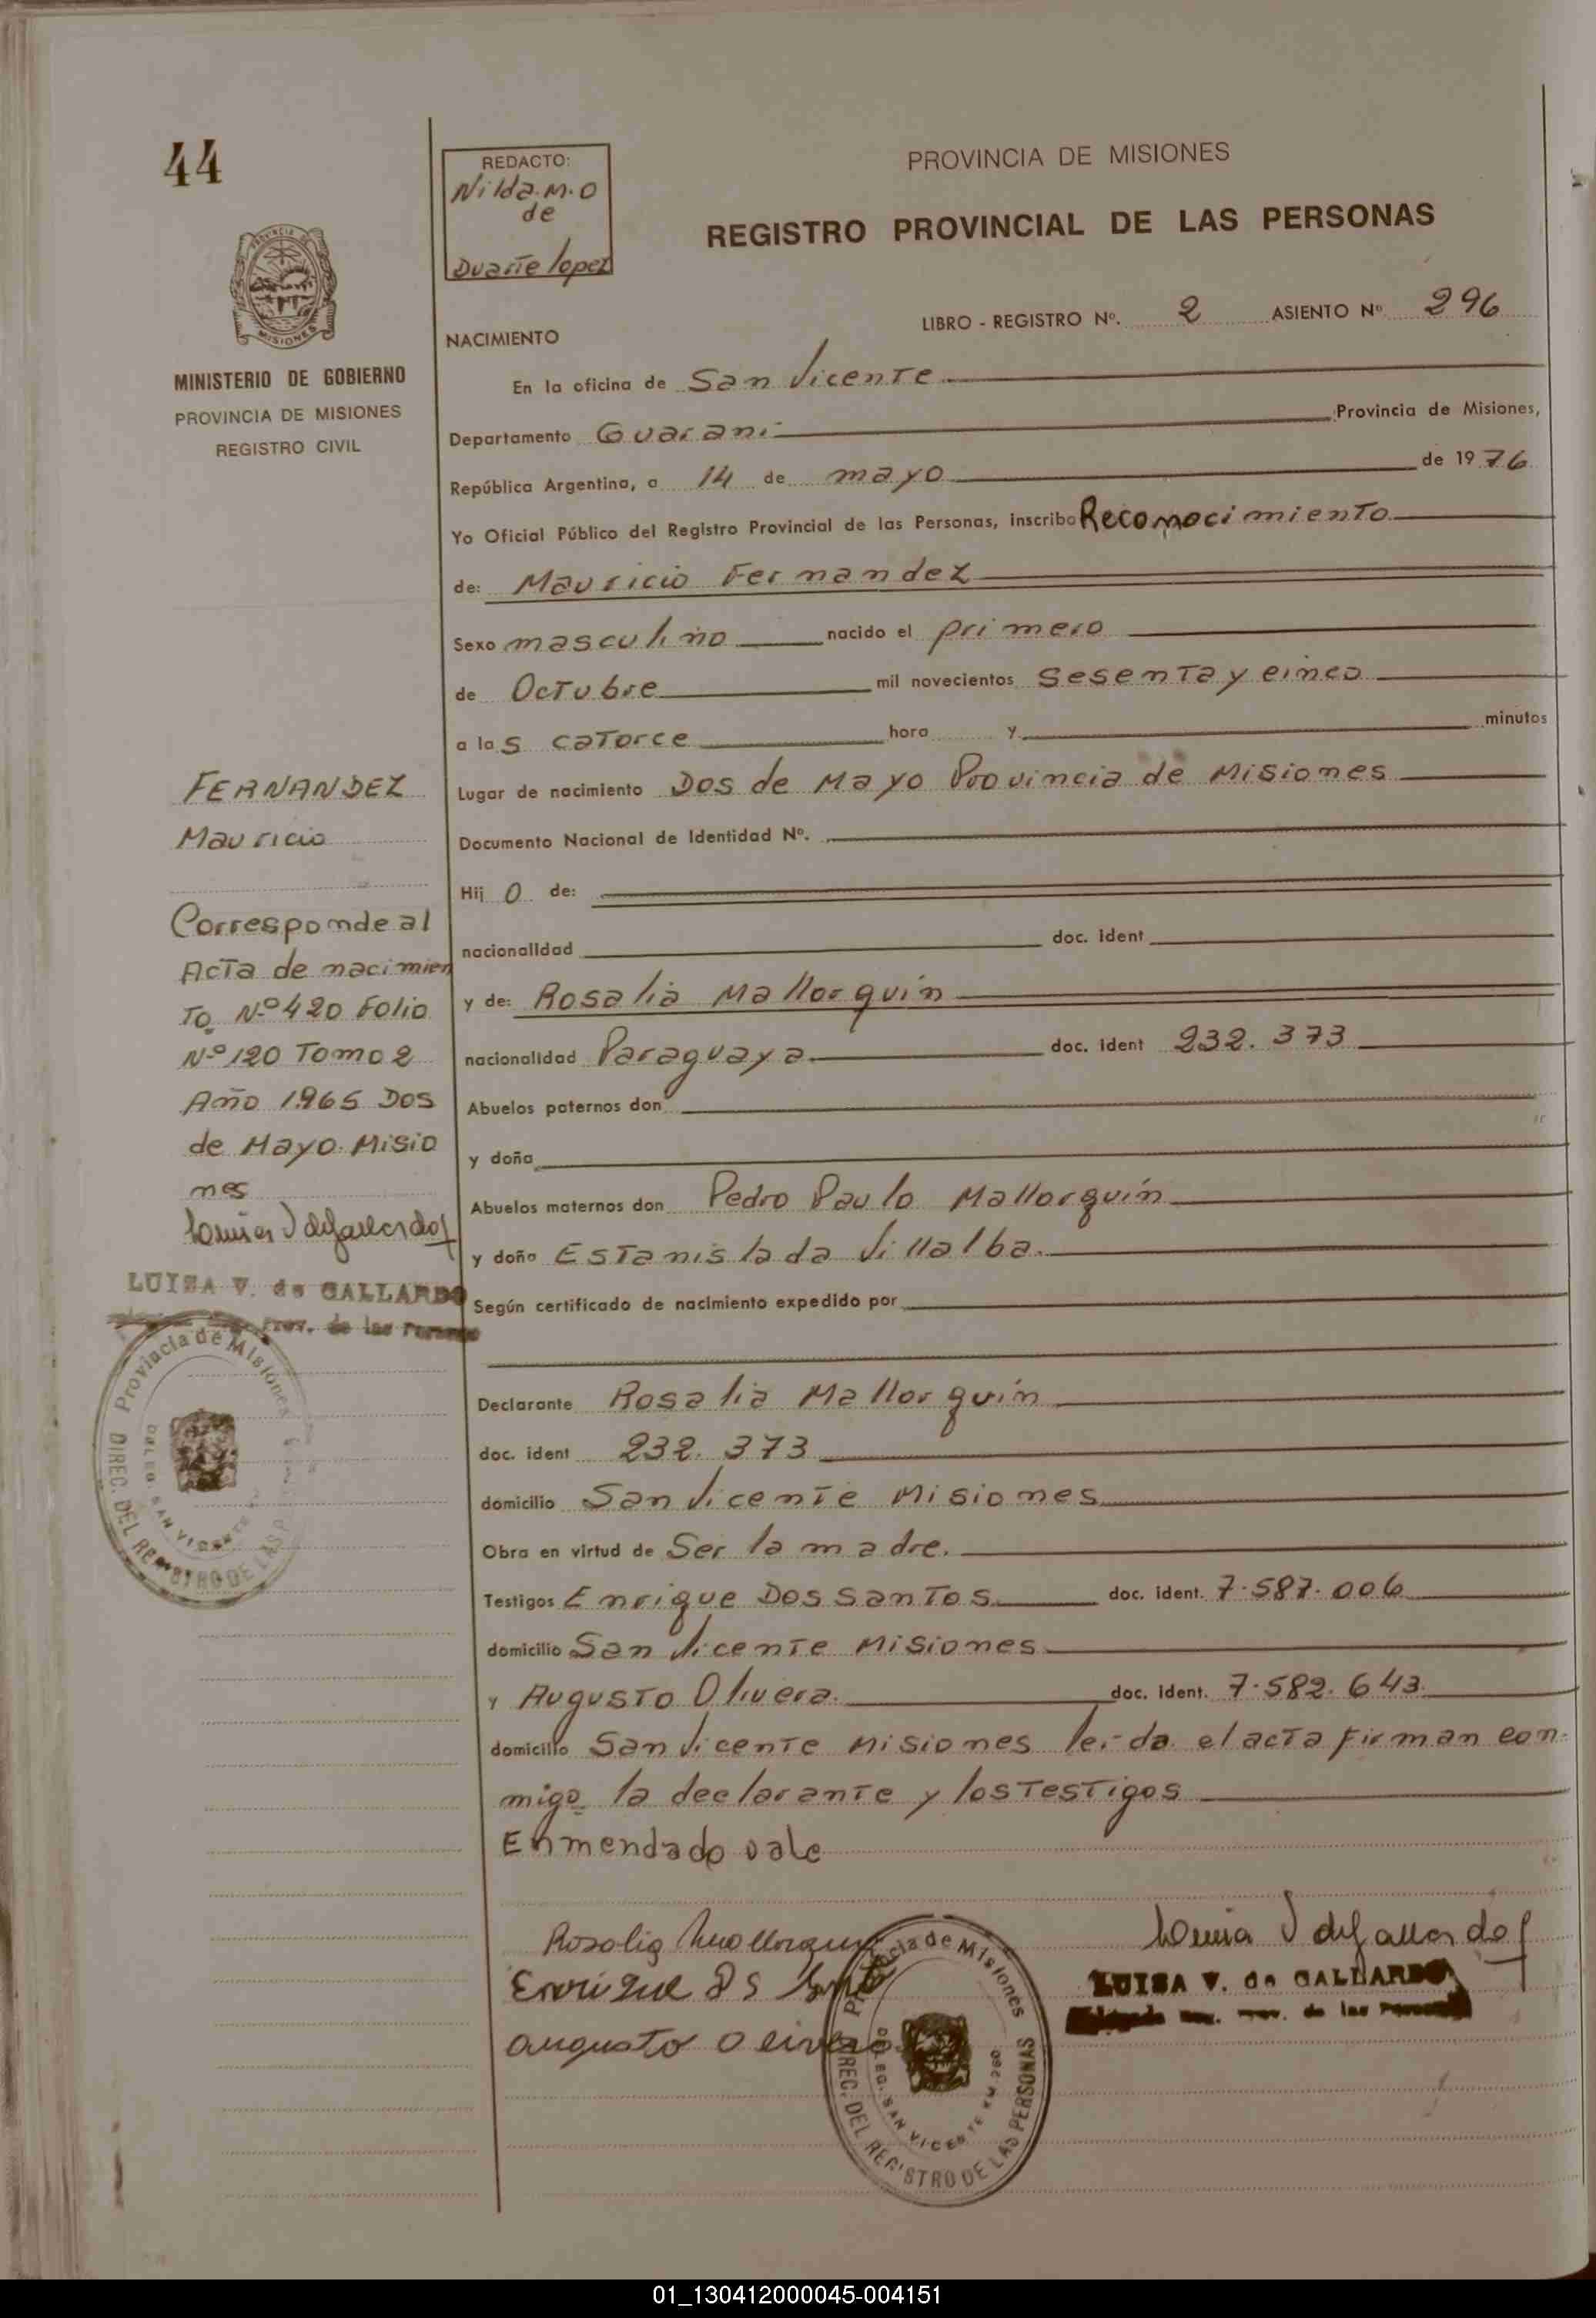 44
REDACTO:
Nilda.M.O
de
Duarte lopez
PROVINCIA DE MISIONES
REGISTRO PROVINCIAL DE LAS PERSONAS
PROVINCIA DE
MISIONES
MINISTERIO DE GOBIERNO
PROVINCIA DE MISIONES
REGISTRO CIVIL
LIBRO - REGISTRO Nº. 2 ASIENTO Nº 296
NACIMIENTO
En la oficina de San Vicente
Departamento Guarani Provincia de Misiones,
República Argentina, a 14 de mayo de 1976
Yo Oficial Público del Registro Provincial de las Personas, inscribo Reconocimiento
de: Mauricio Fernandez
Sexo masculino nacido el primero
de Octubre mil novecientos sesenta y cinco
a las catorce hora y minutos
Lugar de nacimiento Dos de Mayo Provincia de Misiones
Documento Nacional de Identidad Nº.
Hijo de:
nacionalidad doc. ident
y de: Rosalia Mallorquin
nacionalidad Paraguaya doc. ident 232.373
Abuelos paternos don
y doña
Abuelos maternos don Pedro Paulo Mallorquín
y doña Estanislada Villalba.
Según certificado de nacimiento expedido por
Declarante Rosalia Mallorquín
doc. ident 232.373
domicilio San Vicente Misiones
Obra en virtud de Ser la madre.
Testigos Enrique Dos santos doc. ident. 7.587.006
domicilio San Vicente Misiones
y Augusto Olivera. doc. ident. 7.582.643.
domicilio San Vicente Misiones leida el acta firman con-
migo la declarante y los testigos
Enmendado vale
FERNANDEZ
Mauricio
Corresponde al
Acta de nacimien
to Nº 420 Folio
Nº 120 Tomo 2
Año 1965 Dos
de Mayo. Misio
nes
Luisa V de Gallardo
LUISA V. de GALLARDO
Prov. de las Personas
Provincia de Misiones
DIREC. DEL REGISTRO DE LAS P
DELEG. SAN VICENTE
Rosalia Mallorquin
Enrique Ds Santo
augusto Olivera
Provincia de Misiones
DIREC. DEL REGISTRO DE LAS PERSONAS
DELEG. SAN VICENTE KM 260
Luisa V de Gallardo
LUISA V. de GALLARDO
de las Personas
01_130412000045-004151